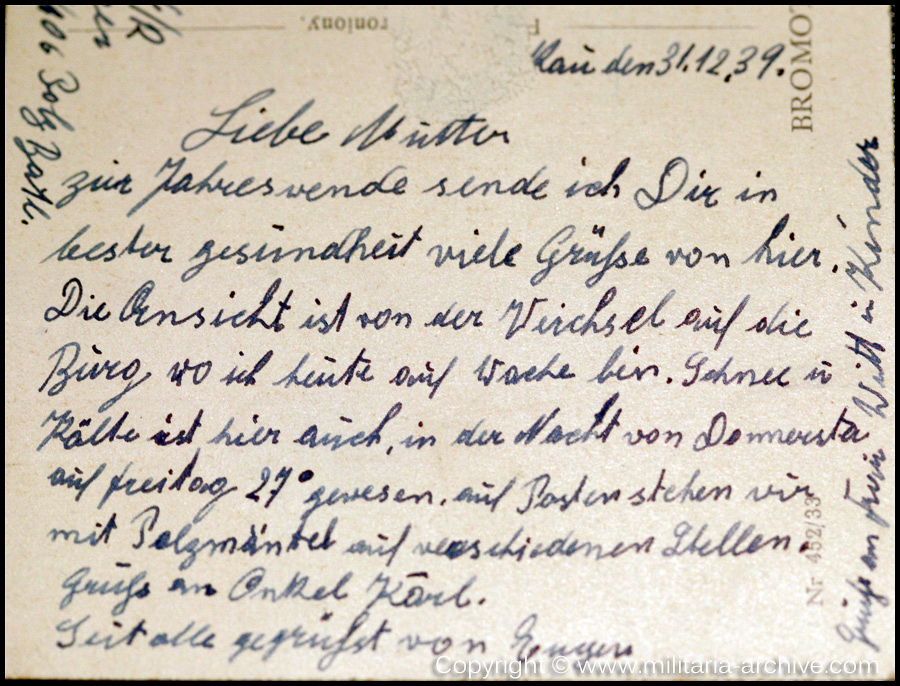 den 31.12.39.
Liebe Mutter
zur Jahreswende sende ich Dir in
bester gesundheit viele Grüße von hier.
Die Ansicht ist von der Veichsel auf die
Burg wo ich heute auf Wache bin. Schnee u
Kälte ist hier auch, in der Nacht von Donnersta
auf freitag 27° gewesen. auf Posten stehen wir
mit Pelzmäntel auf verschiedenen Stellen.
Gruß an Onkel Karl.
Seit alle gegrüßt von Eugen
Grüße an Frau Witt u Kender
Polz Batl.
BROMOT
Nr 452/33
Copyright © www.militaria-archive.com